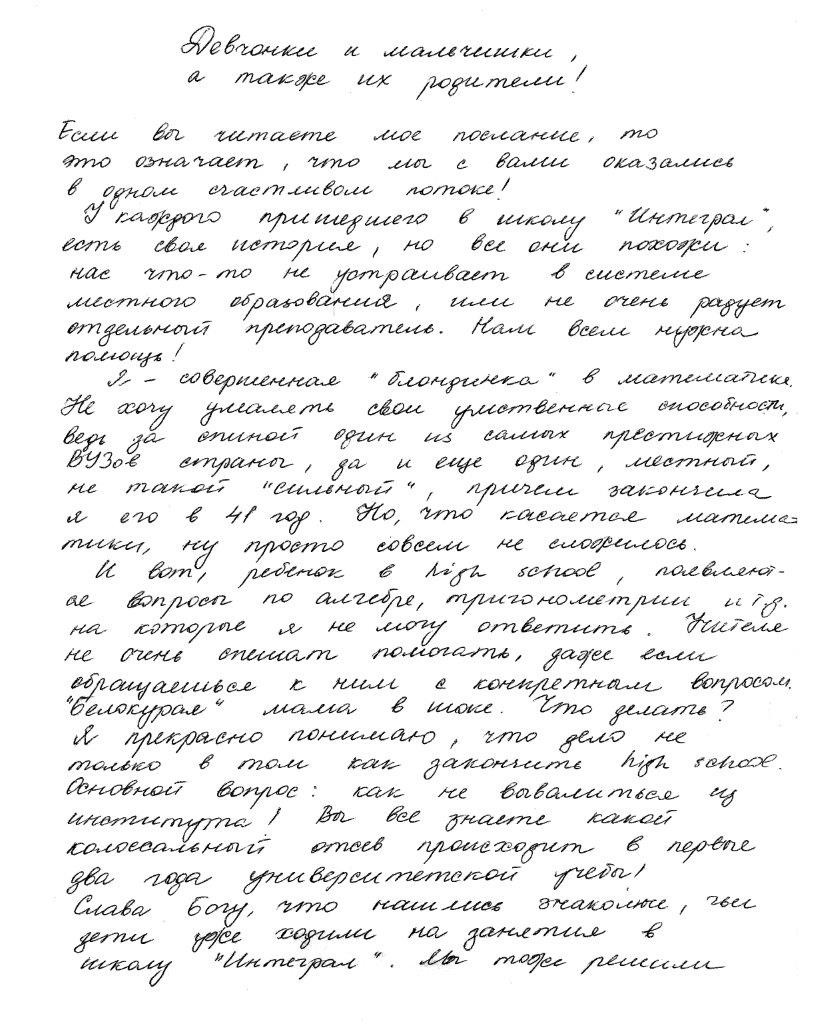 Девчонки и мальчишки,
а также их родители!
Если вы читаете мое послание, то
это означает, что мы с вами оказались
в одном счастливом потоке!
У каждого пришедшего в школу "Интеграл",
есть своя история, но все они похожи:
нас что-то не устраивает в системе
местного образования, или не очень радует
отдельный преподаватель. Нам всем нужна
помощь!
Я - совершенная "блондинка" в математике.
Не хочу умалять свои умственные способности,
ведь за спиной один из самых престижных
ВУЗов страны, да и еще один, местный,
не такой "сильный", причем закончила
я его в 41 год. Но, что касается матема=
тики, ну просто совсем не сложилось.
И вот, ребенок в high school, появляют-
ся вопросы по алгебре, тригонометрии и т.д.
на которые я не могу ответить. Учителя
не очень спешат помогать, даже если
обращаешься к ним с конкретным вопросом.
"Белокурая" мама в шоке. Что делать?
Я прекрасно понимаю, что дело не
только в том как закончить high school.
Основной вопрос: как не вывалиться из
института! Вы все знаете какой
колоссальный отсев происходит в первые
два года университетской учебы!
Слава Богу, что нашлись знакомые, чьи
дети уже ходили на занятия в
школу "Интеграл". Мы тоже решили